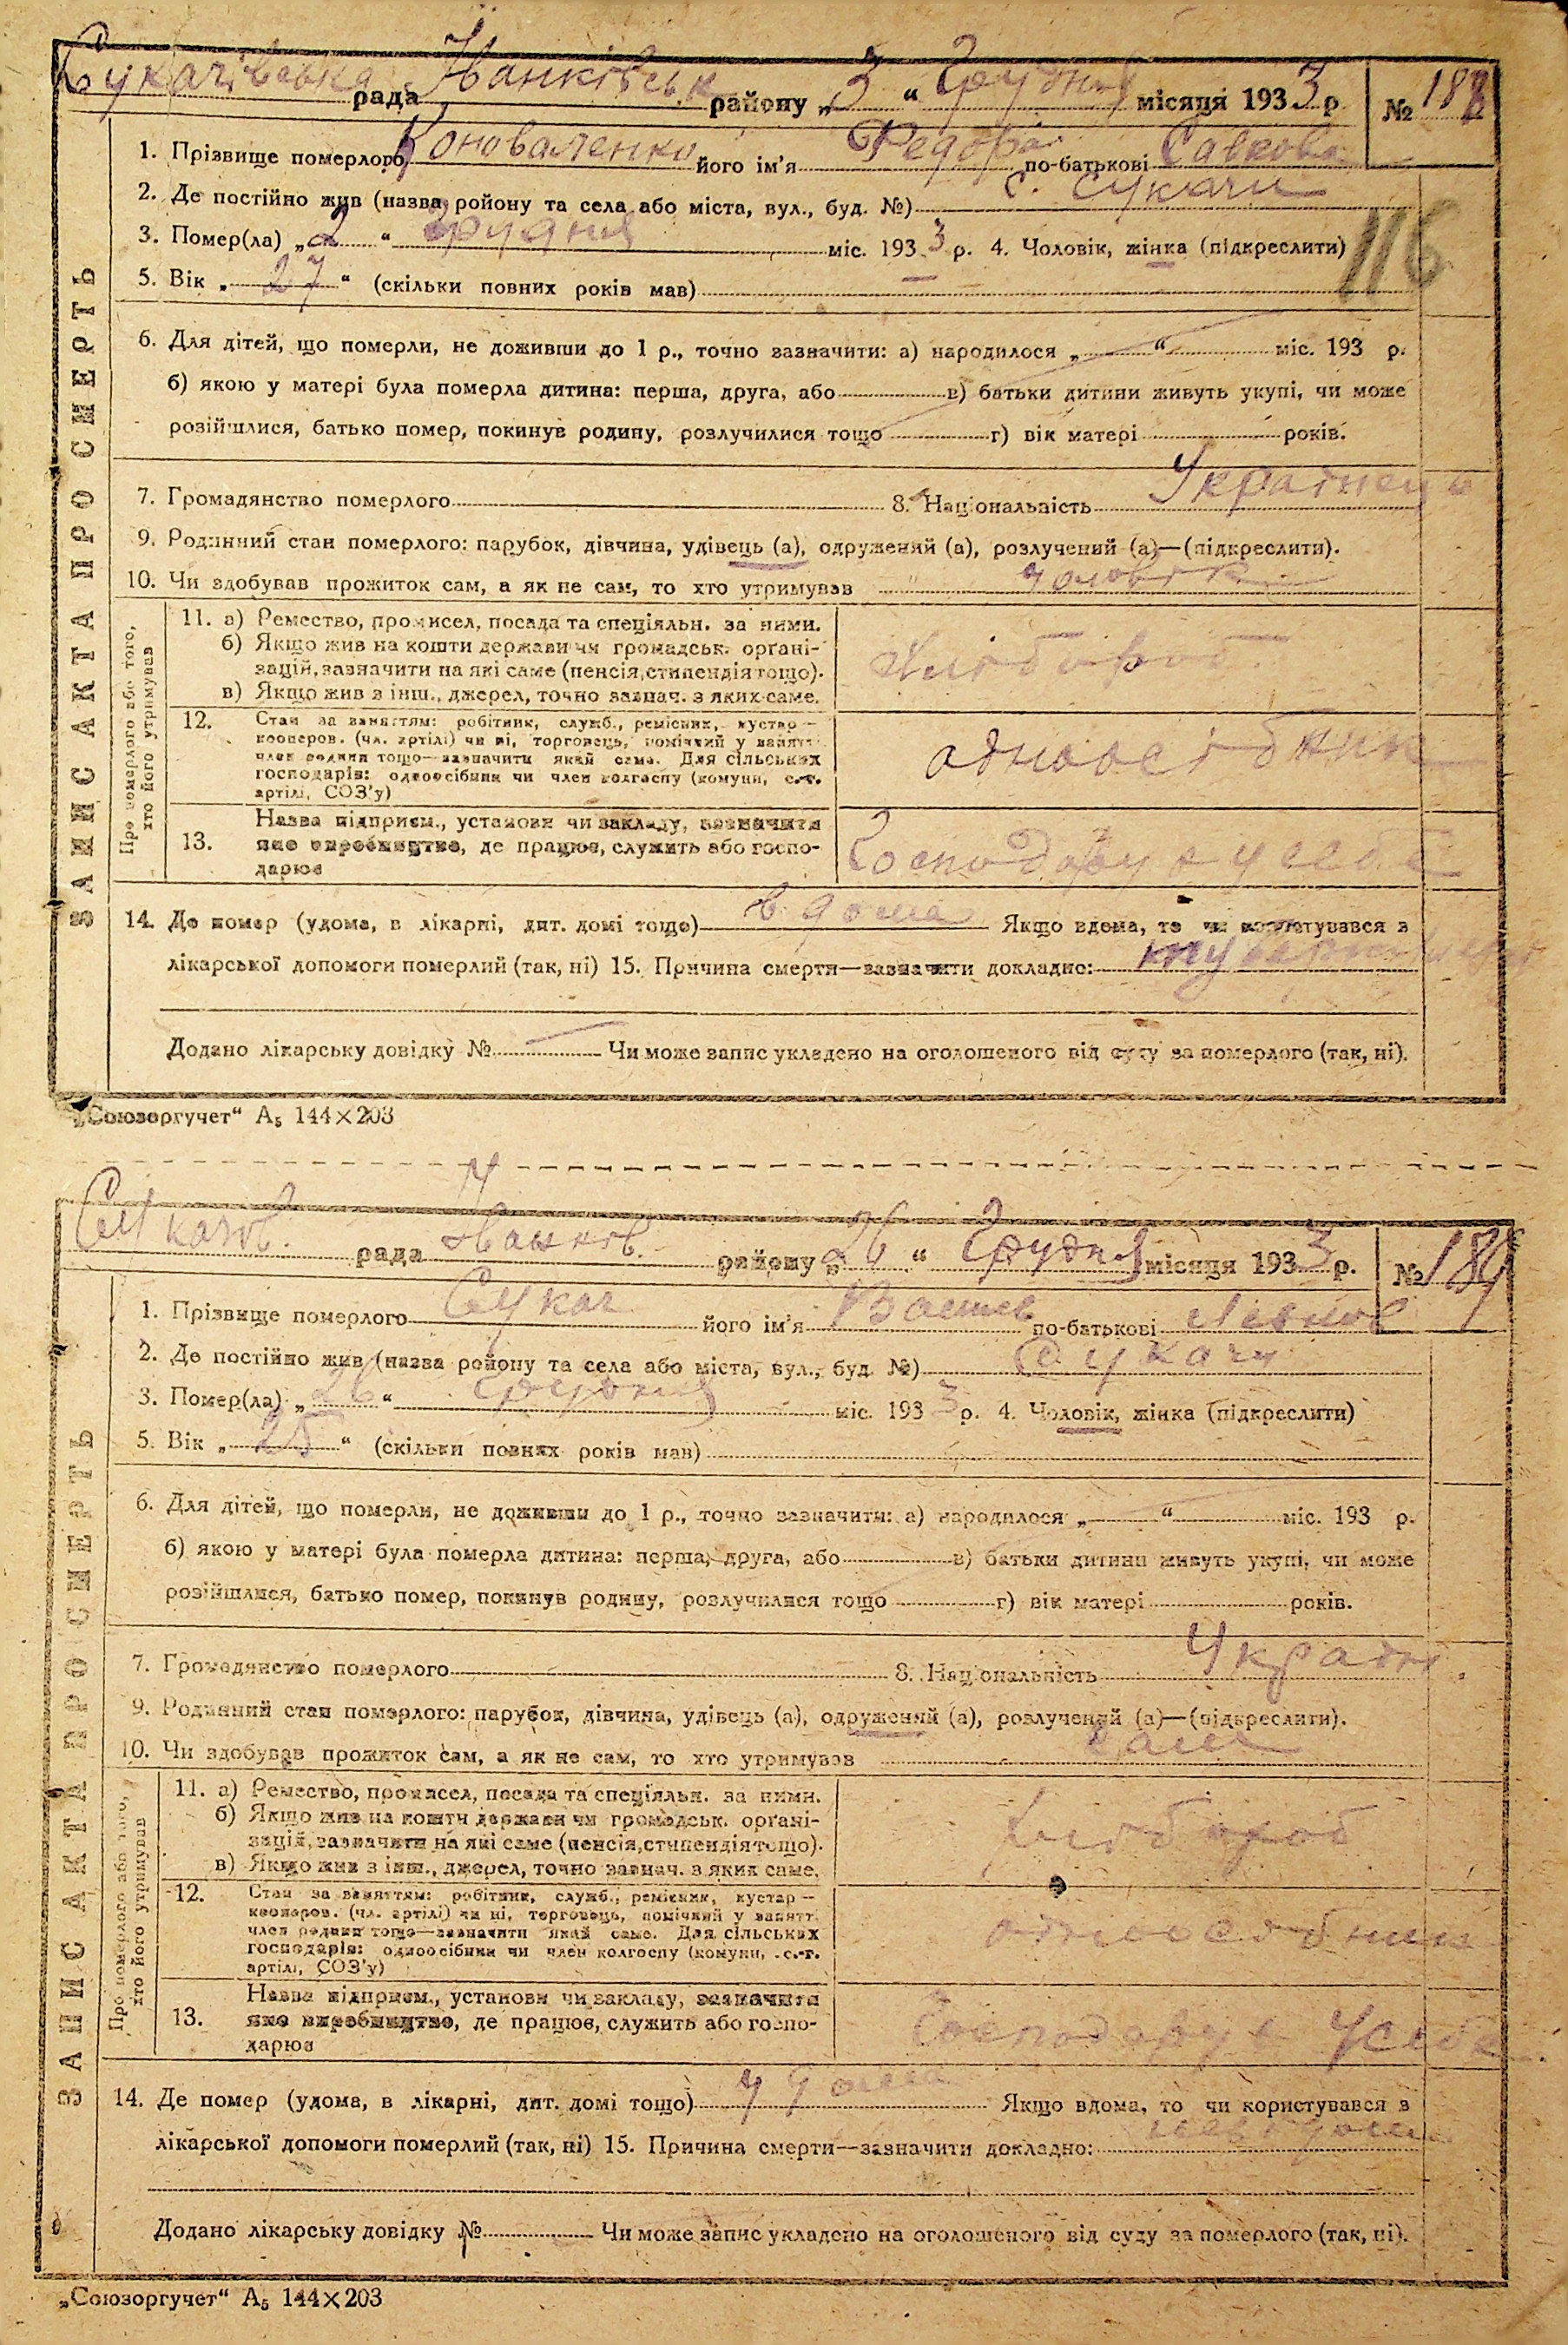 Сукачівська рада Іванківськ району „3 “ Грудня місяця 1933 р. № 188
1. Прізвище померлого Коноваленко його ім'я Федора по-батькові Савкова
2. Де постійно жив (назва ройону та села або міста, вул., буд. №) с. Сукачи
3. Помер(ла) „2 “ грудня міс. 193 3 р. 4. Чоловік, жінка (підкреслити)
116
5. Вік „ 27 “ (скільки повних років мав)
6. Для дітей, що померли, не доживши до 1 р., точно зазначити: а) народилося „ “ міс. 193 р.
б) якою у матері була померла дитина: перша, друга, або в) батьки дитини живуть укупі, чи може
розійшлися, батько помер, покинув родину, розлучилися тощо г) вік матері років.
7. Громадянство померлого 8. Національність
9. Родинний стан померлого: парубок, дівчина, удівець (а), одружений (а), розлучений (а)—(підкреслити).
10. Чи здобував прожиток сам, а як не сам, то хто утримував чоловік
ЗАПИС АКТА ПРО СМЕРТЬ
Про померлого або того, хто його утримував
11. а) Ремество, промисел, посада та спеціяльн. за ними.
б) Якщо жив на кошти держави чи громадськ. орґані-
зацій, зазначити на які саме (пенсія, стипендія тощо).
в) Якщо жив з інш., джерел, точно зазнач. з яких саме.
хлібороб
12. Стан за заняттям: робітник, служб., ремісник, кустар —
кооперов. (чл. артілі) чи ні, торговець, помічний у занятт.
член родини тощо—зазначити який саме. Для сільських
господарів: одноосібник чи член колгоспу (комуни, с.-г.
артілі, СОЗ'у)
одноосібник
13. Назва підприєм., установи чи закладу, зазначити
яке виробництво, де працює, служить або госпо-
дарює
Господарує у себе
14. Де помер (удома, в лікарні, дит. домі тощо) в дома Якщо вдома, то чи користувався з
лікарської допомоги померлий (так, ні) 15. Причина смерти—зазначити докладно:
Додано лікарську довідку № Чи може запис укладено на оголошеного від суду за померлого (так, ні).
„Союзоргучет“ А₅ 144×203
Сукачів. рада Іванків. району „26 “ Грудня місяця 193 3 р. № 189
1. Прізвище померлого Сукач його ім'я по-батькові
2. Де постійно жив (назва ройону та села або міста, вул., буд. №) Сукачи
3. Помер(ла) „ 26 “ грудня міс. 193 3 р. 4. Чоловік, жінка (підкреслити)
5. Вік „ 25 “ (скільки повних років мав)
6. Для дітей, що померли, не доживши до 1 р., точно зазначити: а) народилося „ “ міс. 193 р.
б) якою у матері була померла дитина: перша, друга, або в) батьки дитини живуть укупі, чи може
розійшлися, батько помер, покинув родину, розлучилися тощо г) вік матері років.
7. Громадянство померлого 8. Національність Україн.
9. Родинний стан померлого: парубок, дівчина, удівець (а), одружений (а), розлучений (а)—(підкреслити).
10. Чи здобував прожиток сам, а як не сам, то хто утримував сам
ЗАПИС АКТА ПРО СМЕРТЬ
Про померлого або того, хто його утримував
11. а) Ремество, промисел, посада та спеціяльн. за ними.
б) Якщо жив на кошти держави чи громадськ. орґані-
зацій, зазначити на які саме (пенсія, стипендія тощо).
в) Якщо жив з інш., джерел, точно зазнач. з яких саме.
Хлібороб
12. Стан за заняттям: робітник, служб., ремісник, кустар —
кооперов. (чл. артілі) чи ні, торговець, помічний у занятт.
член родини тощо—зазначити який саме. Для сільських
господарів: одноосібник чи член колгоспу (комуни, с.-г.
артілі, СОЗ'у)
одноосібник
13. Назва підприєм., установи чи закладу, зазначити
яке виробництво, де працює, служить або госпо-
дарює
Господарує у себе
14. Де помер (удома, в лікарні, дит. домі тощо) удома Якщо вдома, то чи користувався з
лікарської допомоги померлий (так, ні) 15. Причина смерти—зазначити докладно: невідома
Додано лікарську довідку № Чи може запис укладено на оголошеного від суду за померлого (так, ні).
„Союзоргучет“ А₅ 144×203